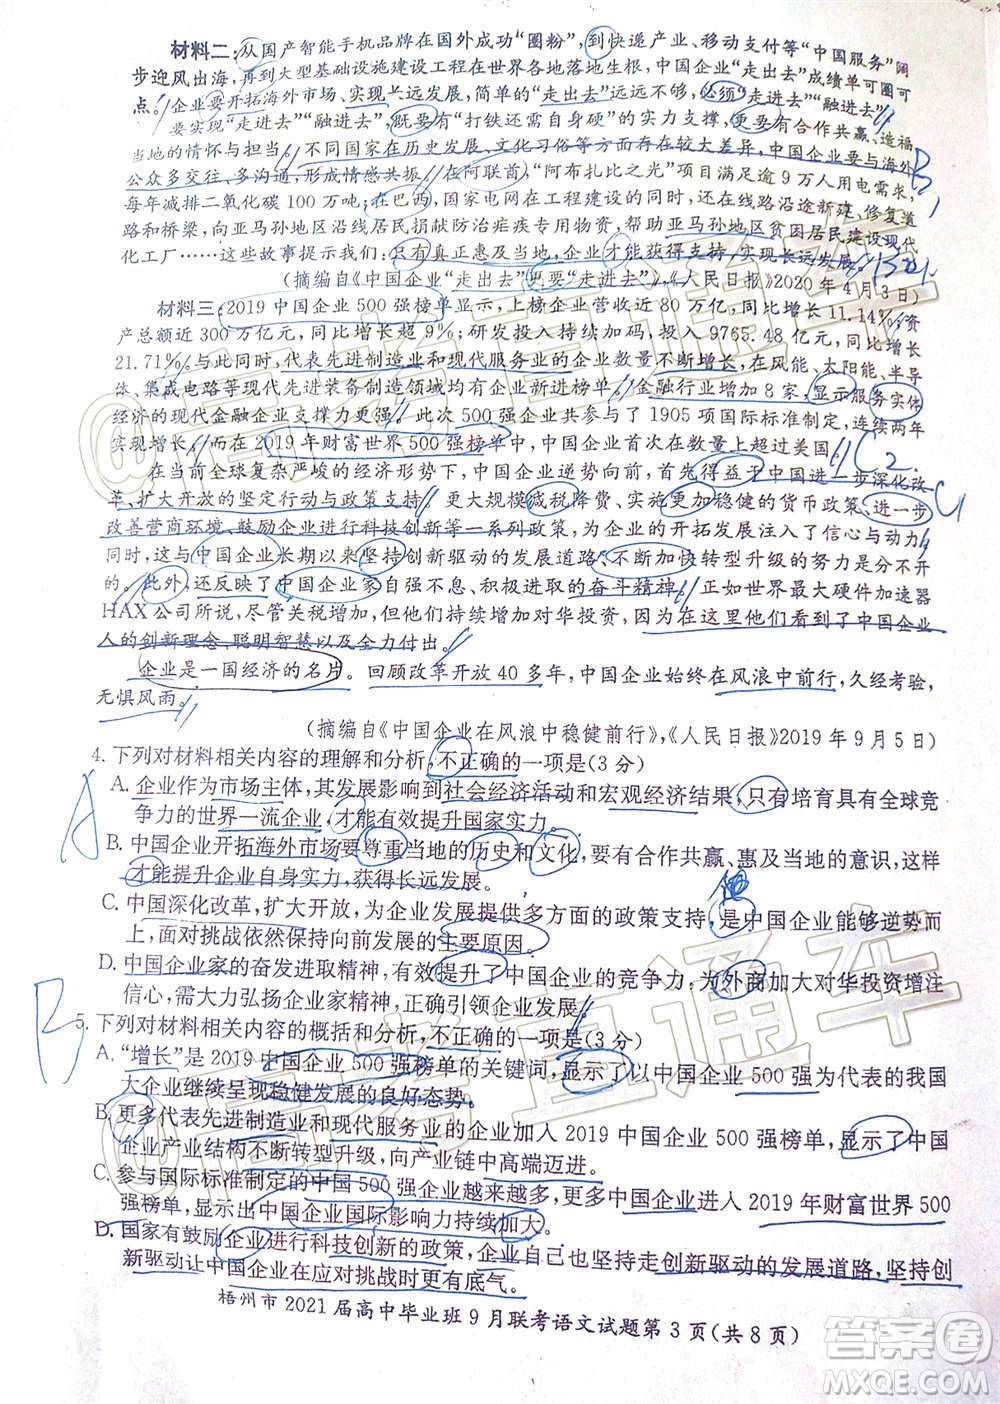 材料二:从国产智能手机品牌在国外成功“圈粉”,到快递产业、移动支付等“中国服务”阔
步迎风出海,再到大型基础设施建设工程在世界各地落地生根,中国企业“走出去”成绩单可圈可
点。企业要开拓海外市场、实现长远发展,简单的“走出去”远远不够,必须“走进去”“融进去”。
要实现“走进去”“融进去”,既要有“打铁还需自身硬”的实力支撑,更要有合作共赢、造福
当地的情怀与担当。不同国家在历史发展、文化习俗等方面存在较大差异,中国企业要与海外
公众多交往、多沟通,形成情感共振。在阿联酋,“阿布扎比之光”项目满足逾9万人用电需求,
每年减排二氧化碳100万吨;在巴西,国家电网在工程建设的同时,还在线路沿途新建、修复道
路和桥梁,向亚马孙地区沿线居民捐献防治疟疾专用物资,帮助亚马孙地区贫困居民建设现代
化工厂……这些故事提示我们:只有真正惠及当地,企业才能获得支持,实现长远发展。
(摘编自《中国企业“走出去”更要“走进去”》,《人民日报》2020年4月3日)
材料三:2019中国企业500强榜单显示,上榜企业营收近80万亿,同比增长11.14%;资
产总额近300万亿元,同比增长超9%;研发投入持续加码,投入9765.48亿元,同比增长
21.71%。与此同时,代表先进制造业和现代服务业的企业数量不断增长,在风能、太阳能、半导
体、集成电路等现代先进装备制造领域均有企业新进榜单。金融行业增加8家,显示服务实体
经济的现代金融企业支撑力更强。此次500强企业共参与了1905项国际标准制定,连续两年
实现增长。而在2019年财富世界500强榜单中,中国企业首次在数量上超过美国。
在当前全球复杂严峻的经济形势下,中国企业逆势向前,首先得益于中国进一步深化改
革、扩大开放的坚定行动与政策支持。更大规模减税降费、实施更加稳健的货币政策、进一步
改善营商环境、鼓励企业进行科技创新等一系列政策,为企业的开拓发展注入了信心与动力。
同时,这与中国企业长期以来坚持创新驱动的发展道路、不断加快转型升级的努力是分不开
的。此外,还反映了中国企业家自强不息、积极进取的奋斗精神。正如世界最大硬件加速器
HAX公司所说,尽管关税增加,但他们持续增加对华投资,因为在这里他们看到了中国企业
人的创新理念、聪明智慧以及全力付出。
企业是一国经济的名片。回顾改革开放40多年,中国企业始终在风浪中前行,久经考验,
无惧风雨。
(摘编自《中国企业在风浪中稳健前行》,《人民日报》2019年9月5日)
4.下列对材料相关内容的理解和分析,不正确的一项是(3分)
A.企业作为市场主体,其发展影响到社会经济活动和宏观经济结果,只有培育具有全球竞
争力的世界一流企业,才能有效提升国家实力。
B.中国企业开拓海外市场要尊重当地的历史和文化,要有合作共赢、惠及当地的意识,这样
才能提升企业自身实力,获得长远发展。
C.中国深化改革,扩大开放,为企业发展提供多方面的政策支持,是中国企业能够逆势而
上,面对挑战依然保持向前发展的主要原因。
D.中国企业家的奋发进取精神,有效提升了中国企业的竞争力,为外商加大对华投资增注
信心,需大力弘扬企业家精神,正确引领企业发展。
5.下列对材料相关内容的概括和分析,不正确的一项是(3分)
A.“增长”是2019中国企业500强榜单的关键词,显示了以中国企业500强为代表的我国
大企业继续呈现稳健发展的良好态势。
B.更多代表先进制造业和现代服务业的企业加入2019中国企业500强榜单,显示了中国
企业产业结构不断转型升级,向产业链中高端迈进。
C.参与国际标准制定的中国500强企业越来越多,更多中国企业进入2019年财富世界500
强榜单,显示出中国企业国际影响力持续加大。
D.国家有鼓励企业进行科技创新的政策,企业自己也坚持走创新驱动的发展道路,坚持创
新驱动让中国企业在应对挑战时更有底气。
梧州市2021届高中毕业班9月联考语文试题第3页(共8页)
A
B
@高考直通车
@高考直通车
答案圈
MXQE.COM